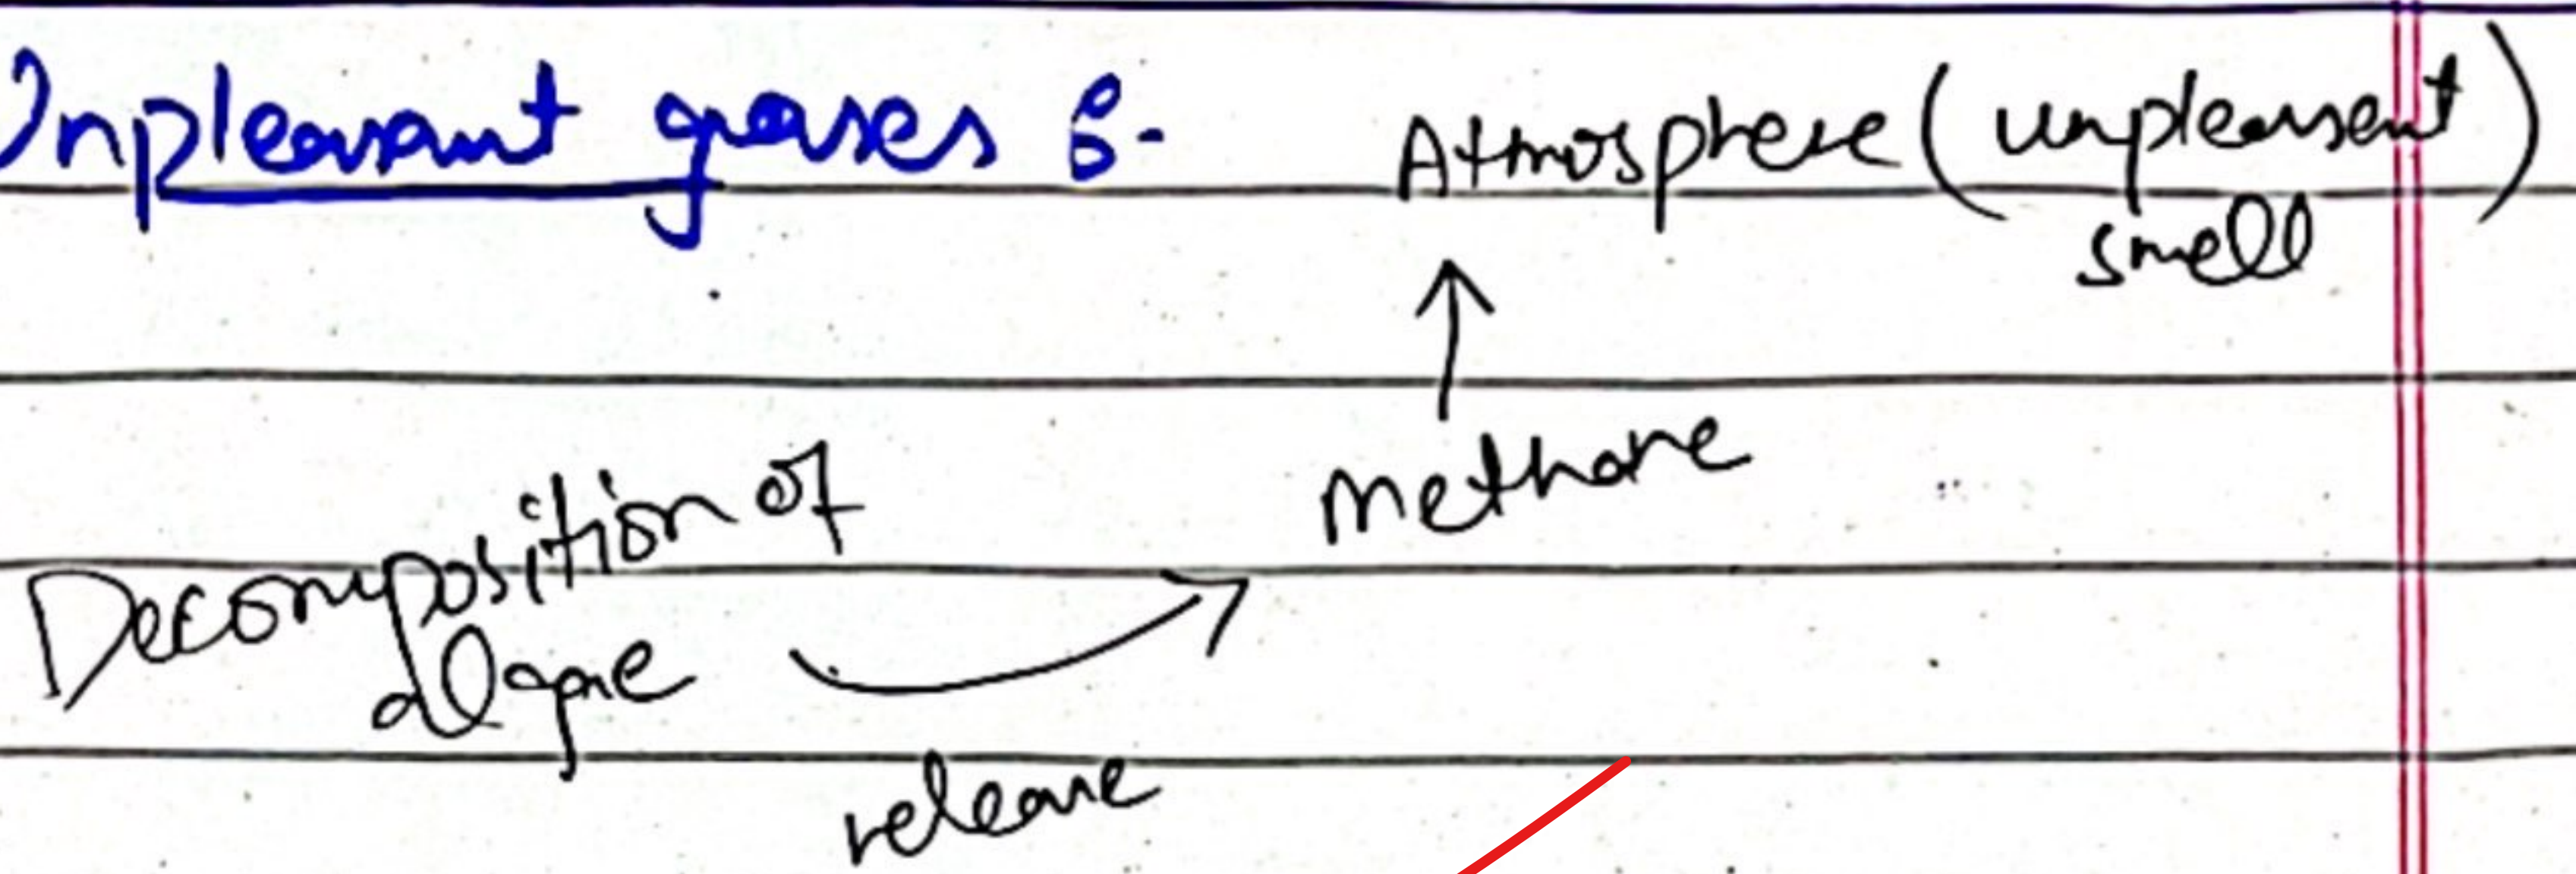 Unpleasant gases :-
Atmosphere (unpleasent)
smell
Methane
Decomposition of
algae
release